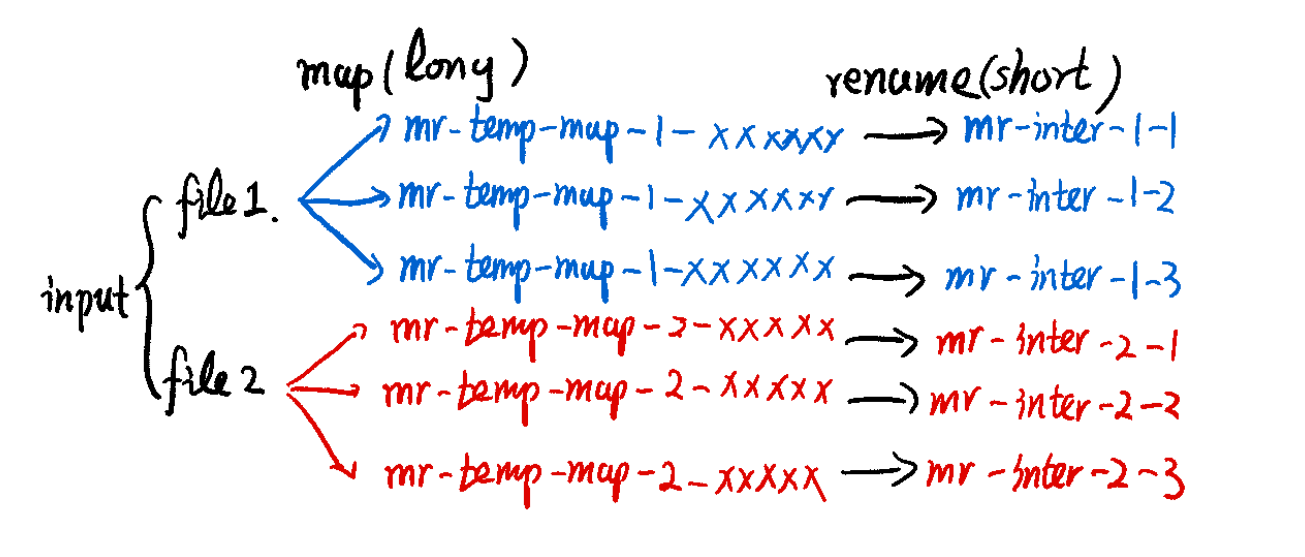 map(long) rename(short)
mr-temp-map-1-xxxxxx → mr-inter-1-1
file1. mr-temp-map-1-xxxxxx → mr-inter-1-2
mr-temp-map-1-xxxxxx → mr-inter-1-3
input
mr-temp-map-2-xxxxx → mr-inter-2-1
file2 mr-temp-map-2-xxxxx → mr-inter-2-2
mr-temp-map-2-xxxxx → mr-inter-2-3